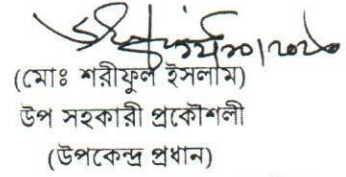 (মোঃ শরীফুল ইসলাম)
উপ সহকারী প্রকৌশলী
(উপকেন্দ্র প্রধান)